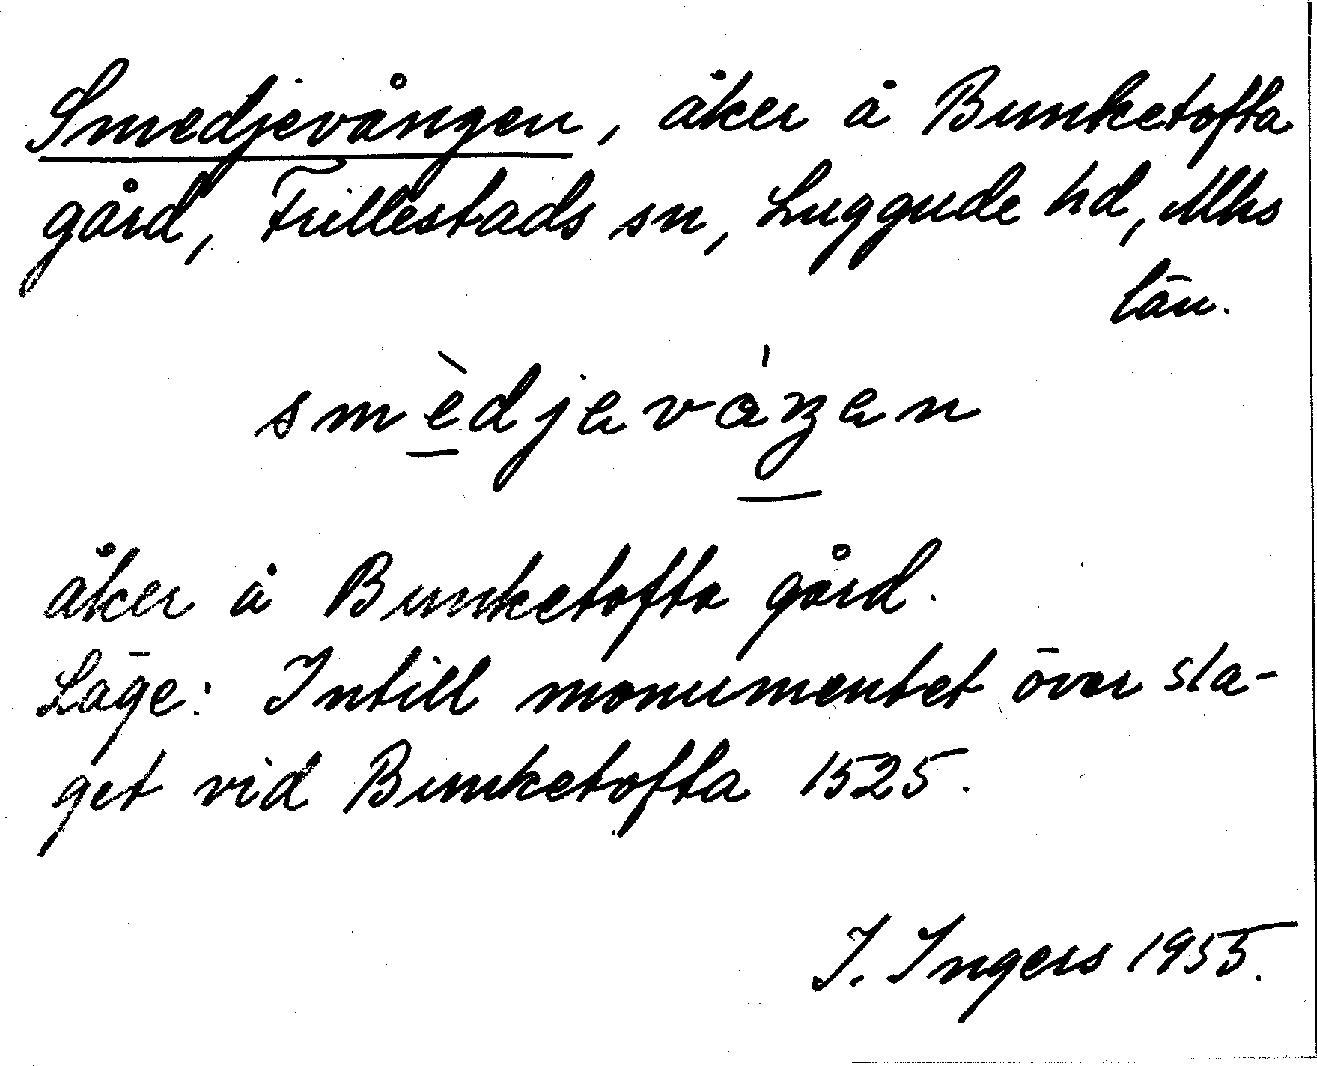 Smedjevången, åker å Bunketofta
gård, Frillestads sn, Luggude hd, Mhs
län.
smèdjavåŋen
åker å Bunketofta gård.
Läge: Intill monumentet över sla-
get vid Bunketofta 1525.
I. Ingers 1955.